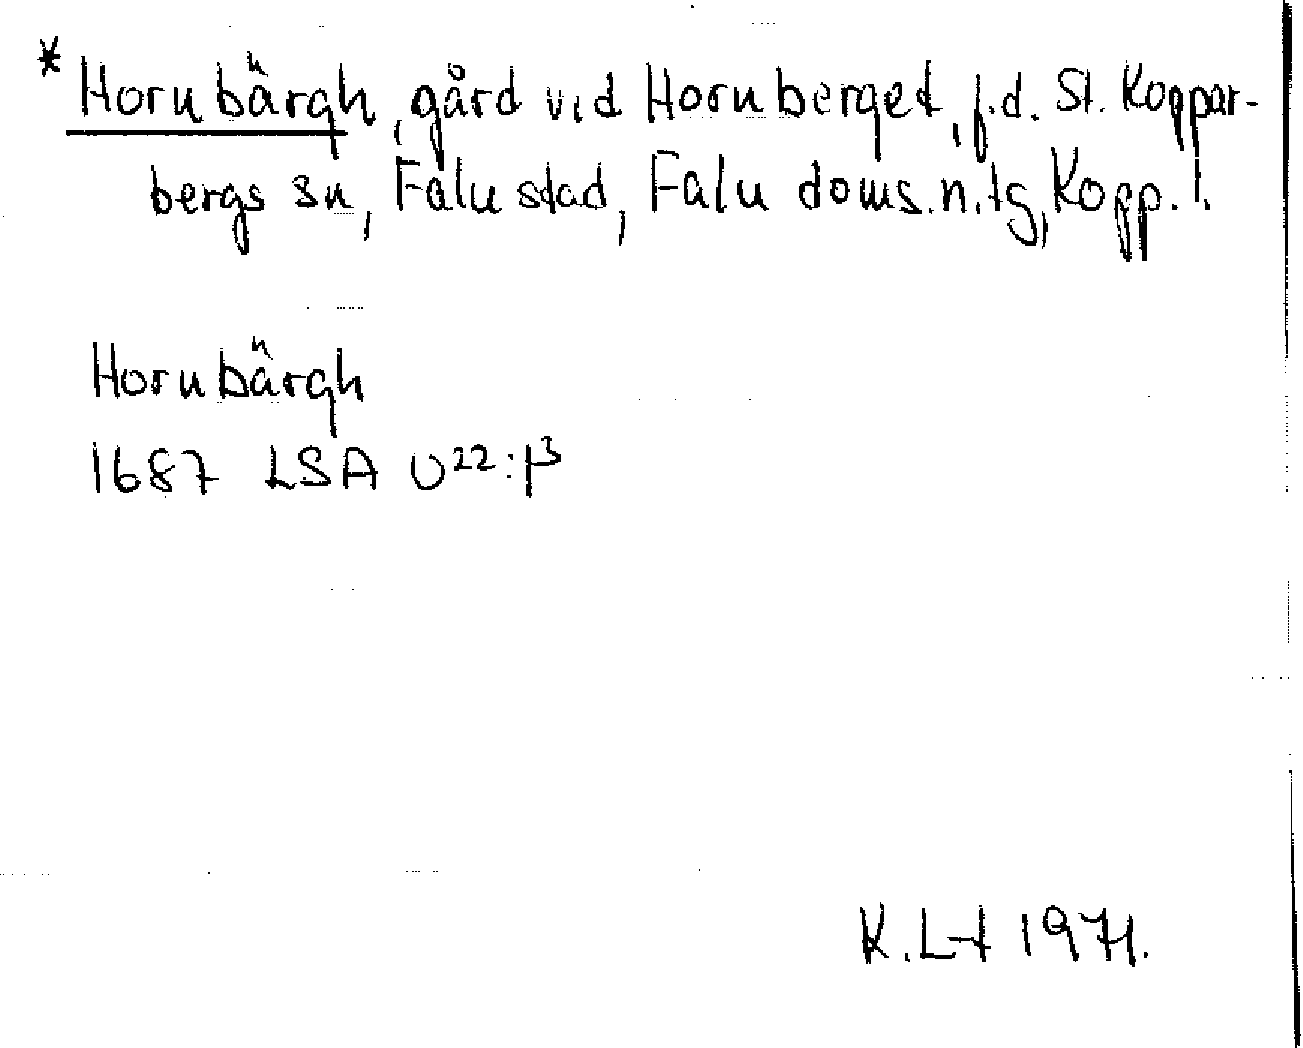 * Hornbärgh, gård vid Hornberget, f.d. St. Koppar-
bergs sn, Falu stad, Falu doms.n.tg, Kopp. l.
Hornbärgh
1687 LSA U²²:1³
K.L-t 1971.